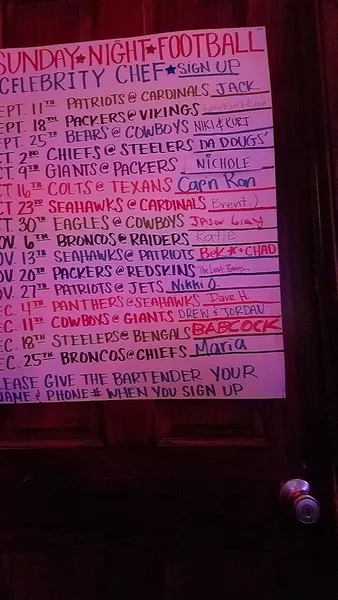 SUNDAY★NIGHT★FOOTBALL
CELEBRITY CHEF★SIGN UP
EPT. 11TH PATRIOTS @ CARDINALS JACK
EPT. 18TH PACKERS @ VIKINGS
EPT. 25TH BEARS @ COWBOYS NIKI & KURT
CT 2ND CHIEFS @ STEELERS DA DOUGS'
CT. 9TH GIANTS @ PACKERS NICHOLE
CT 16TH COLTS @ TEXANS Capn Ron
CT 23RD SEAHAWKS @ CARDINALS Brent.)
CT. 30TH EAGLES @ COWBOYS Jason Gray
OV. 6TH BRONCOS @ RAIDERS Katie
OV. 13TH SEAHAWKS @ PATRIOTS BeK★+CHAD
OV. 20TH PACKERS @ REDSKINS The Lost Boys
OV. 27TH PATRIOTS @ JETS Nikki O.
EC. 4TH PANTHERS @ SEAHAWKS Dave H.
EC. 11TH COWBOYS @ GIANTS DREW & JORDAN
EC. 18TH STEELERS @ BENGALS BABCOCK
EC. 25TH BRONCOS @ CHIEFS Maria
LEASE GIVE THE BARTENDER YOUR
NAME & PHONE # WHEN YOU SIGN UP